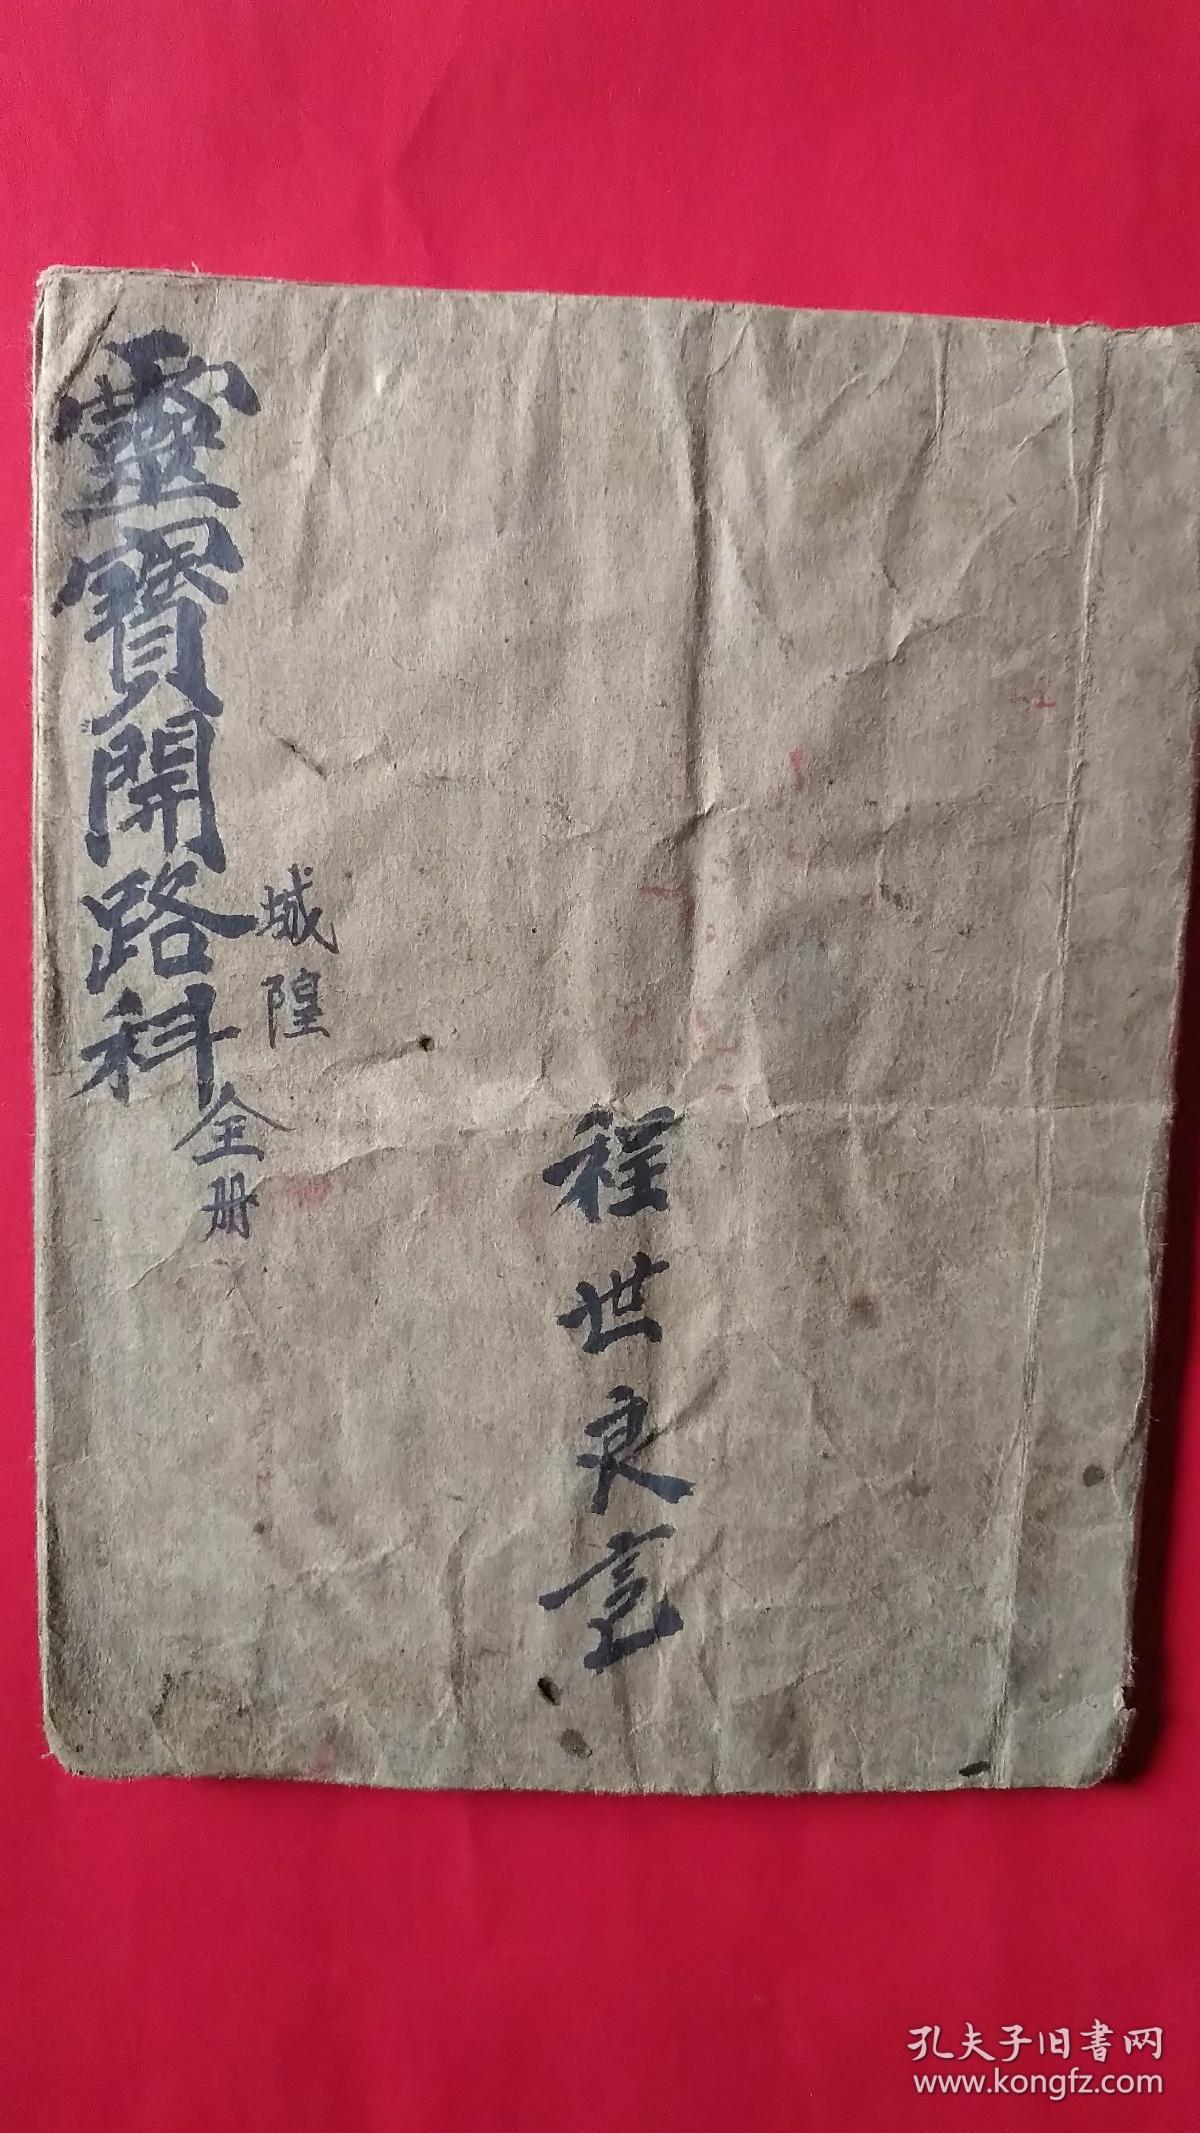 靈寶開路科全册
城隍
程世良
孔夫子旧書网
www.kongfz.com